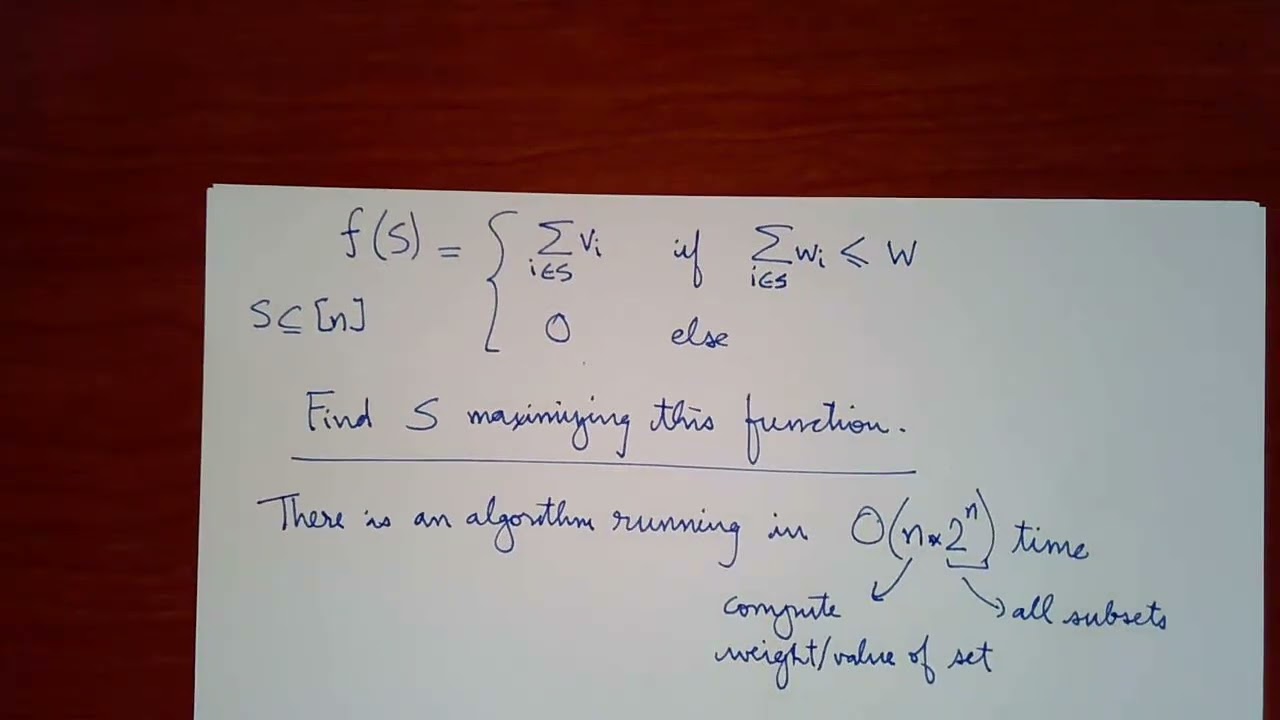 f(S) = { ∑_{i∈S} v_i if ∑_{i∈S} w_i ≤ W
0 else
S ⊆ [n]
Find S maximizing this function.
There is an algorithm running in O(n*2^n) time
compute → all subsets
weight/value of set